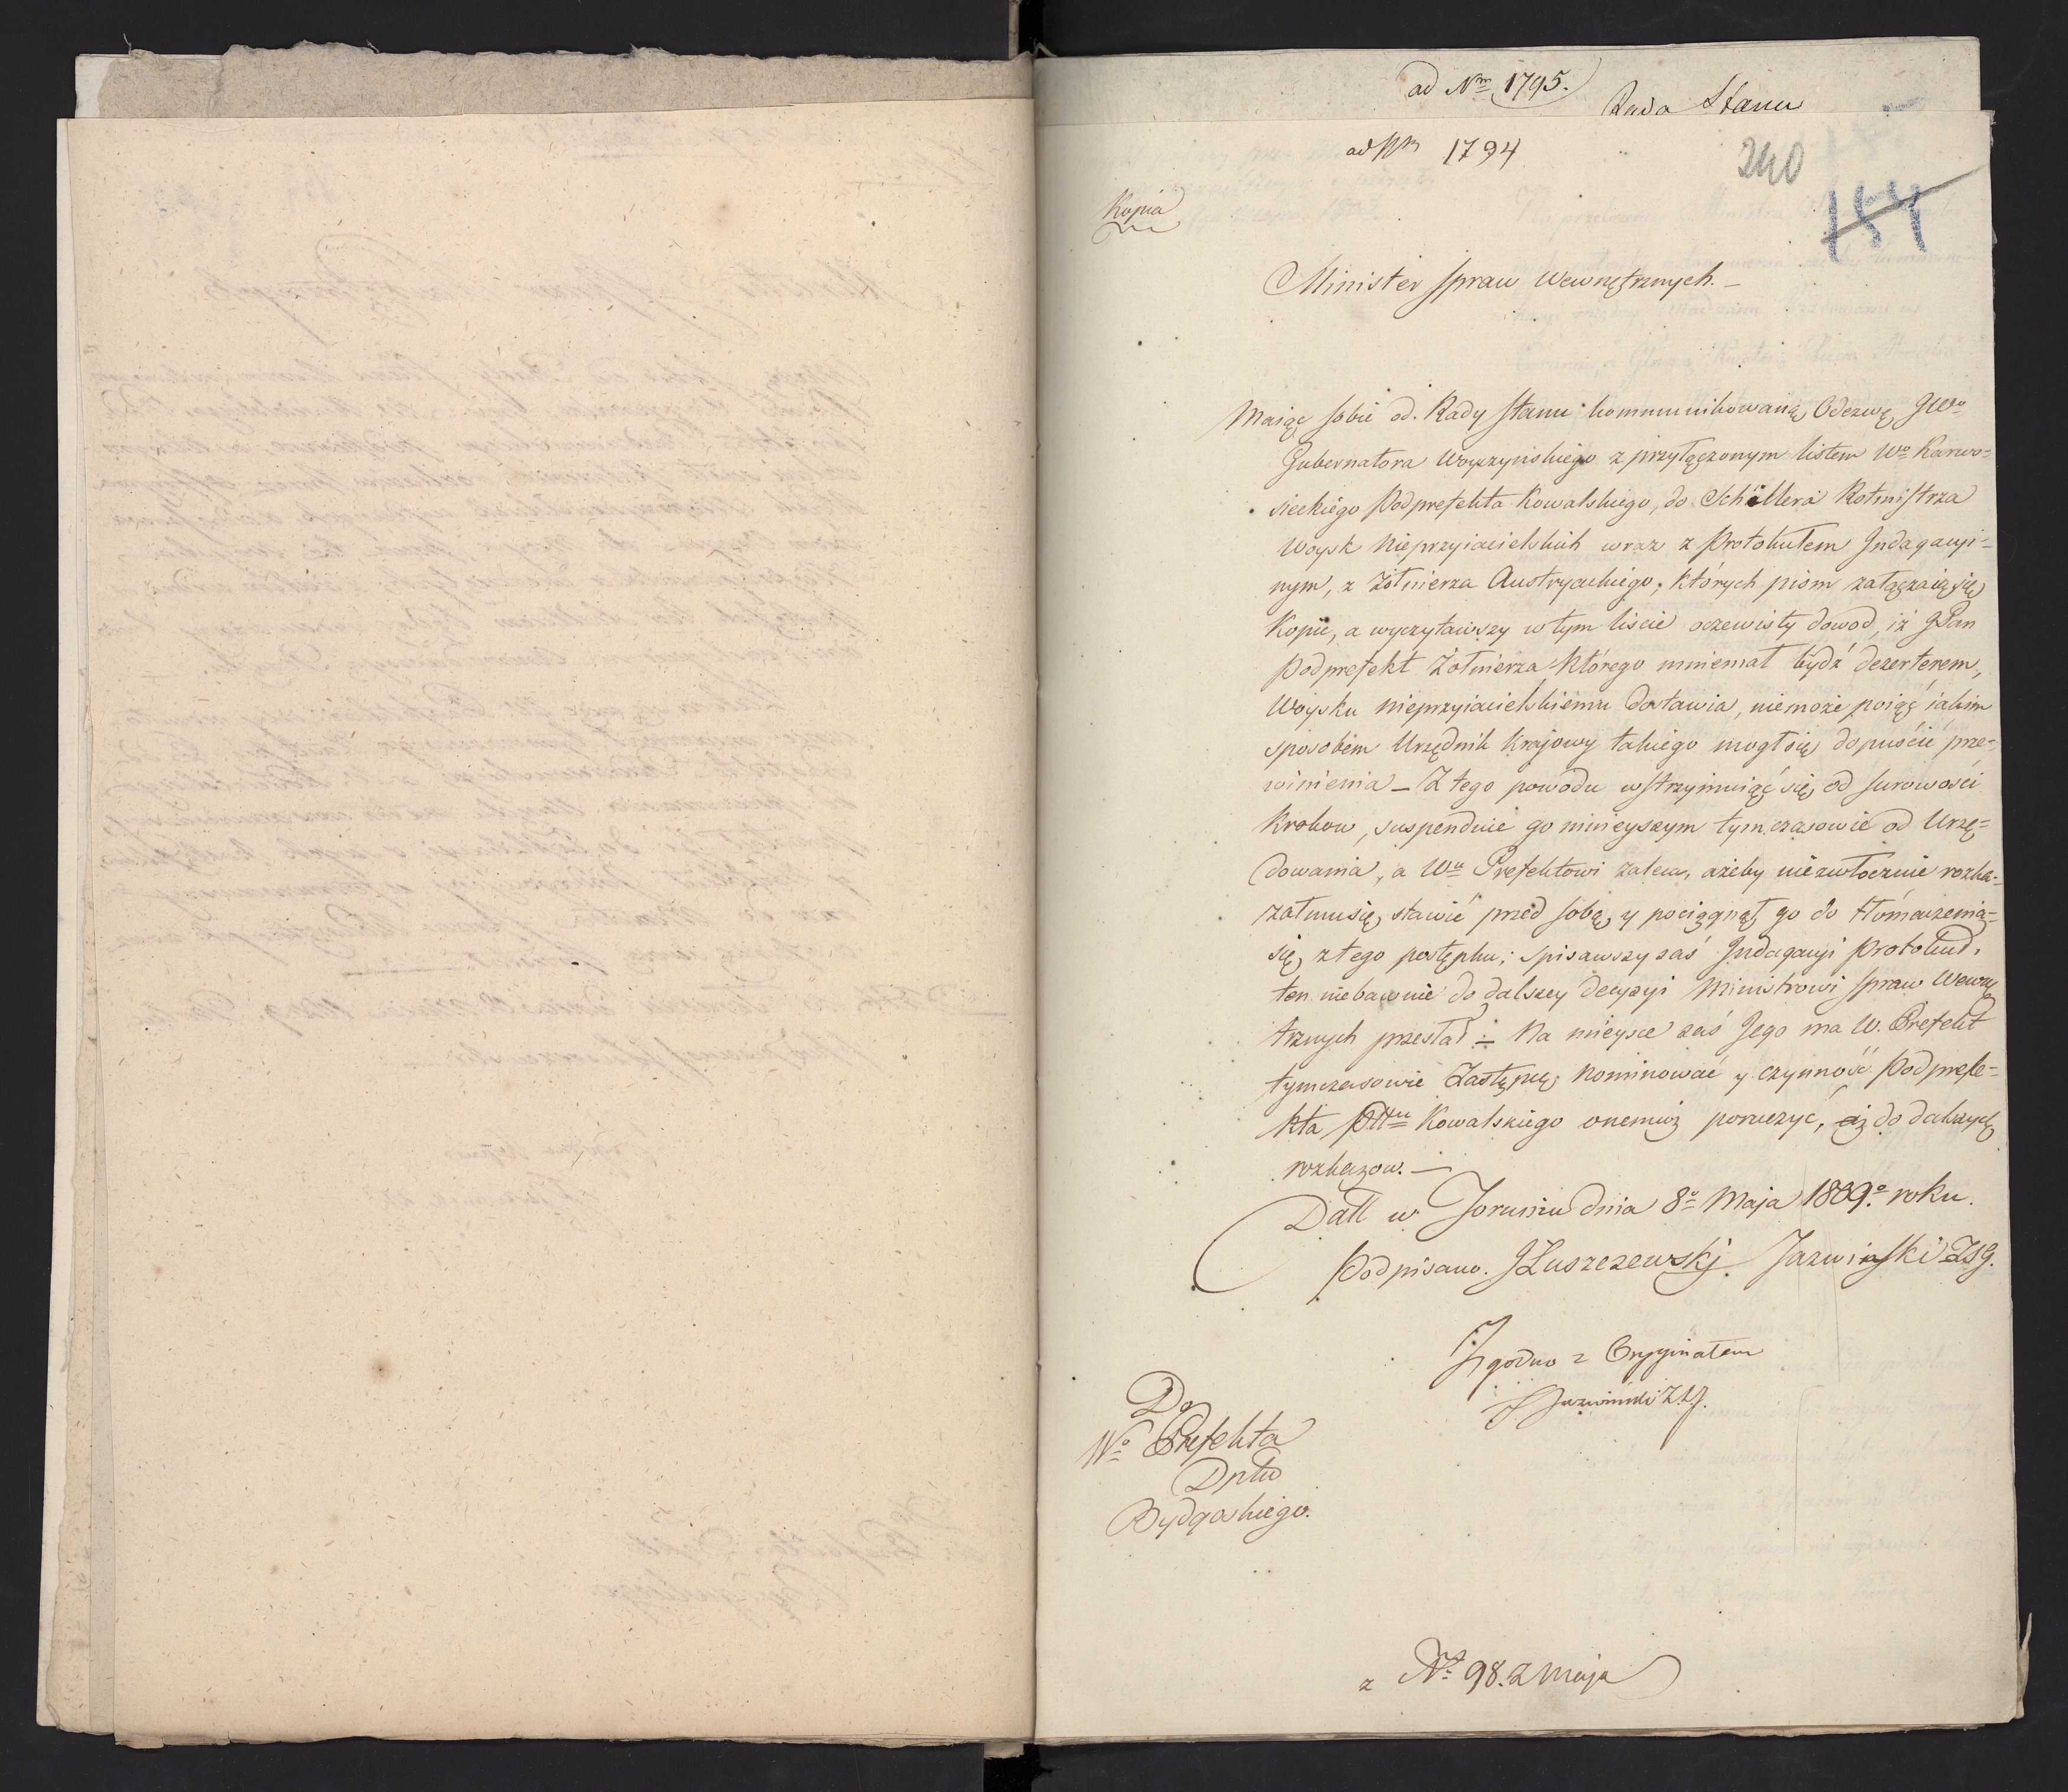 ad Nrm 1795.
Rada Stanu
ad Nrm 1794
240
154
Kopia
Minister Spraw Wewnętrznych. –
Maiąc sobie od Rady Stanu kommunikowaną Odezwę JWo
Gubernatora Woyczyńskiego z przyłączonym listem Wo Karwo=
sieckiego Podprefekta Kowalskiego, do Schillera Rotmistrza
Woysk Nieprzyiacielskich wraz z Protokułem Indagacyi=
nym, z Żołnierza Austryackiego; których pism załączaią się
Kopie, a wyczytawszy w tym liście oczewisty dowod, iż JPan
Podprefekt Żołnierza którego mniemał bydź dezerterem,
Woysku nieprzyiacielskiemu dostawia, niemoże poiąć iakim
sposobem Urzędnik Krajowy takiego mogł się dopuścić prze=
winienia – Z tego powodu wstrzymuiąc się od surowości
Krokow, suspenduie go ninieyszym tymczasowie od Urzę=
dowania, a Wu Prefektowi zaleca, ażeby niezwłocznie rozka=
zał mu się stawić przed sobą, y pociągnął go do tłomaczenia=
się z tego postępku; spisawszy zaś Indagacyi Protokuł,
ten niebawnie do dalszey decyzyi Ministrowi Spraw Wewnę
trznych przesłał ÷ Na mieysce zaś Jego ma W. Prefekt
tymczasowie Zastępcę nominować y czynność Podprefe=
kta Pttu Kowalskiego onemuż poruczyć, aż do dalszych
rozkazow. —
Datt w Toruniu dnia 8o Maja 1809o roku.
Podpisano. JŁuszczewskj. Jazwinski ZSG.
Zgodno z Oryginałem
Jazwinski ZSG.
Do
Wo Prefekta
Dptu
Bydgoskiego.
z No 98. z Maja